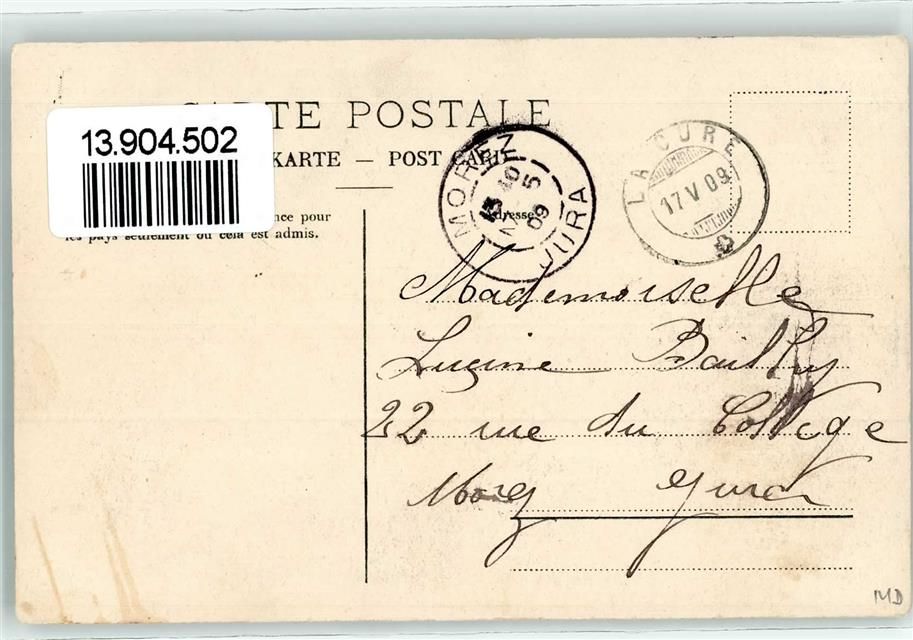 CARTE POSTALE
13.904.502
KARTE — POST CARD
MOREZ JURA
5 09
LA CURE
17 V 09
Adresse
nce pour
les pays seulement où cela est admis.
Mademoiselle
Lucine Bailly
22 rue du Collège
Morez Jura
MD